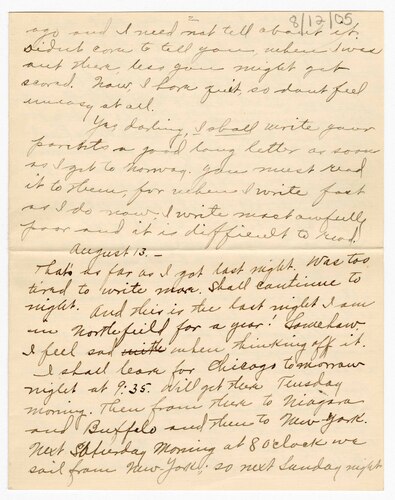 2
8/12/05
ago and I need not tell about it.
Didn't care to tell you, when I was
out there, less you might get
scared. Now, I have quit, so don't feel
uneasy at all.
Yes darling, I shall write your
parents a good long letter as soon
as I get to Norway. You must read
it to them, for when I write fast
as I do now, I write most awfully
poor and it is difficult to read.
August 13.—
That's as far as I got last night. Was too
tired to write more. Shall continue to
night. And this is the last night I am
in Northfield for a year! Somehow
I feel sad with when thinking off it.
I shall leave for Chicago tomorrow
night at 9:35. Will get there Tuesday
morning. Then from there to Niagara
and Buffelo and then to New York.
Next Saturday Morning at 8 o'clock we
sail from New York; so next Sunday night